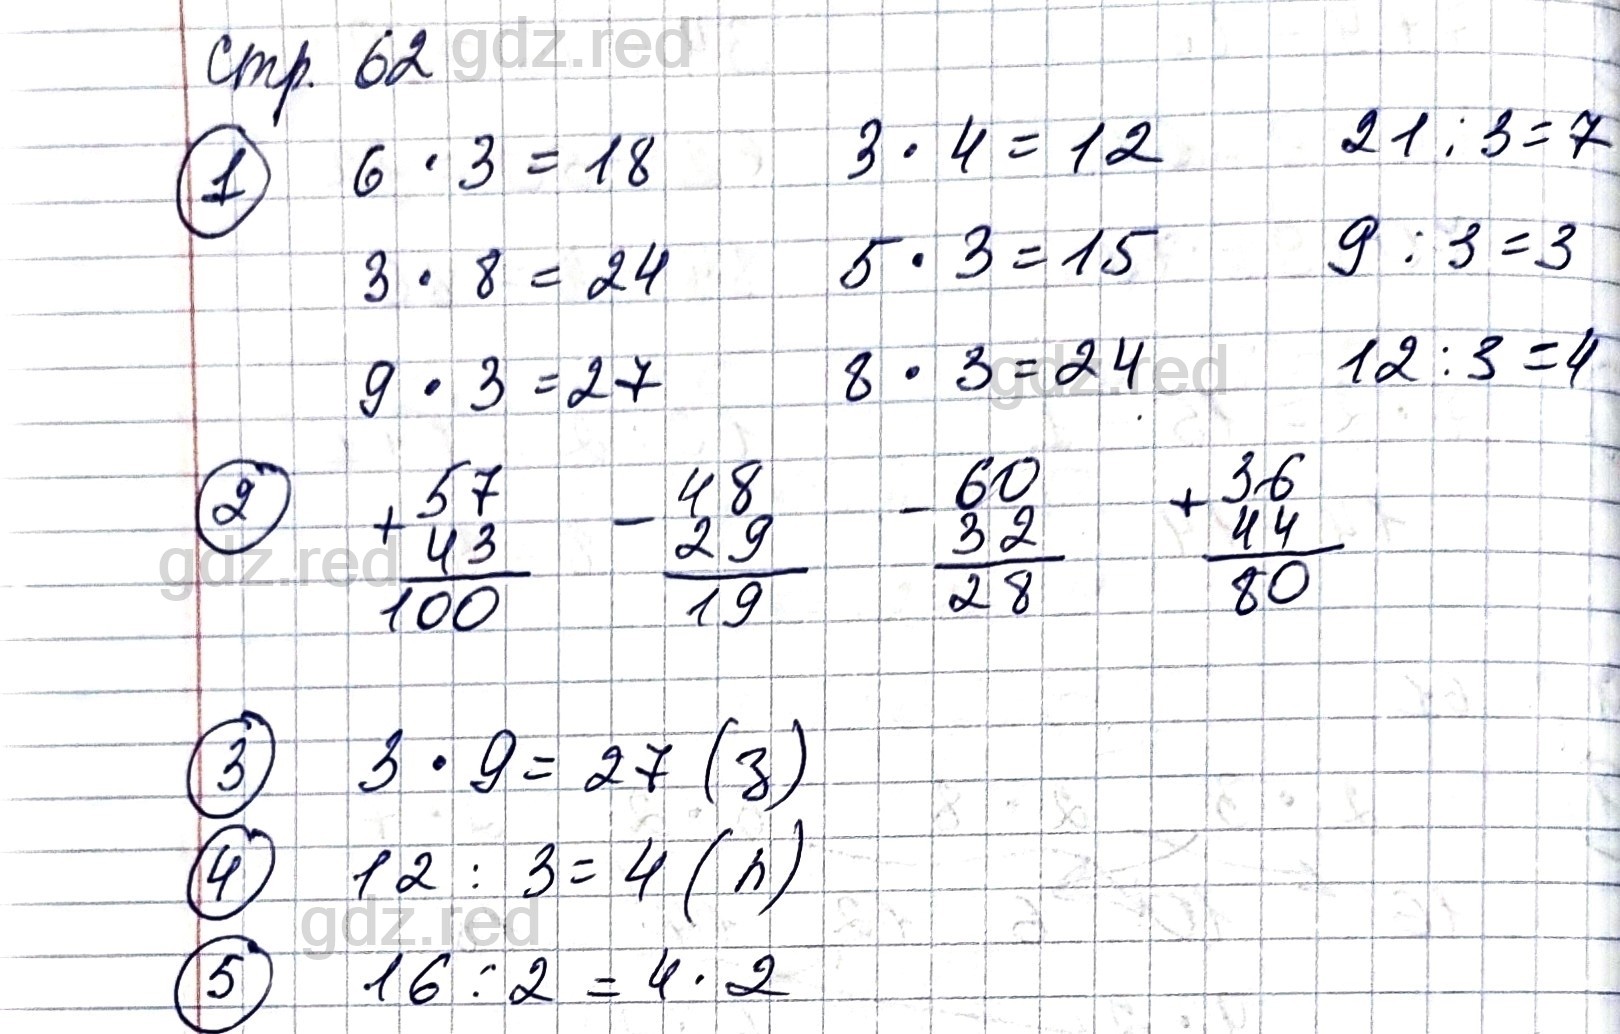 стр. 62 gdz.red
1 6 · 3 = 18 3 · 4 = 12 21 : 3 = 7
3 · 8 = 24 5 · 3 = 15 9 : 3 = 3
9 · 3 = 27 8 · 3 = 24 12 : 3 = 4
gdz.red
2 + 57 - 48 - 60 + 36
43 29 32 44
gdz.red
100 19 28 80
3 3 · 9 = 27 (з)
4 12 : 3 = 4 (п)
gdz.red
5 16 : 2 = 4 · 2